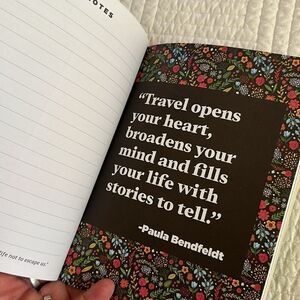 NOTES
life not to escape us."
"Travel opens
your heart,
broadens your
mind and fills
your life with
stories to tell."
-Paula Bendfeldt